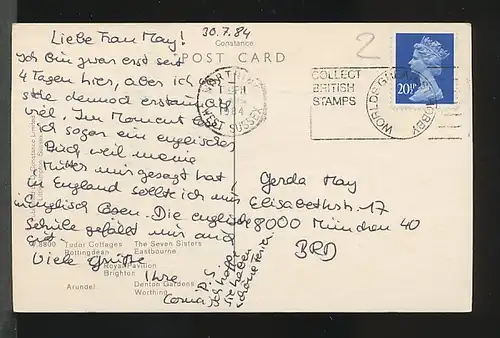 30.7.84
Liebe Frau May!
Constance
POST CARD
Ich bin zwar erst seit
4 Tagen hier, aber ich
dennoch
viel. Im Moment lese
ich sogar ein englisches
Buch weil meine
Mutter mir gesagt hat,
in England sollte ich nur
englisch lesen. Die englische
Schule gefällt mir auch
gut.
Viele Grüße
Ihre
P.S.
Ich hoffe
Sie haben
schöne Ferien
Tudor Cottages
Rottingdean
The Seven Sisters
Eastbourne
Royal Pavilion
Brighton
Arundel
Denton Gardens
Worthing
WORTHING
WEST SUSSEX
1984
COLLECT
BRITISH
STAMPS
WORLDS GREATEST HOBBY
20½P
2
Gerda May
Elisabethstr. 17
8000 München 40
BRD